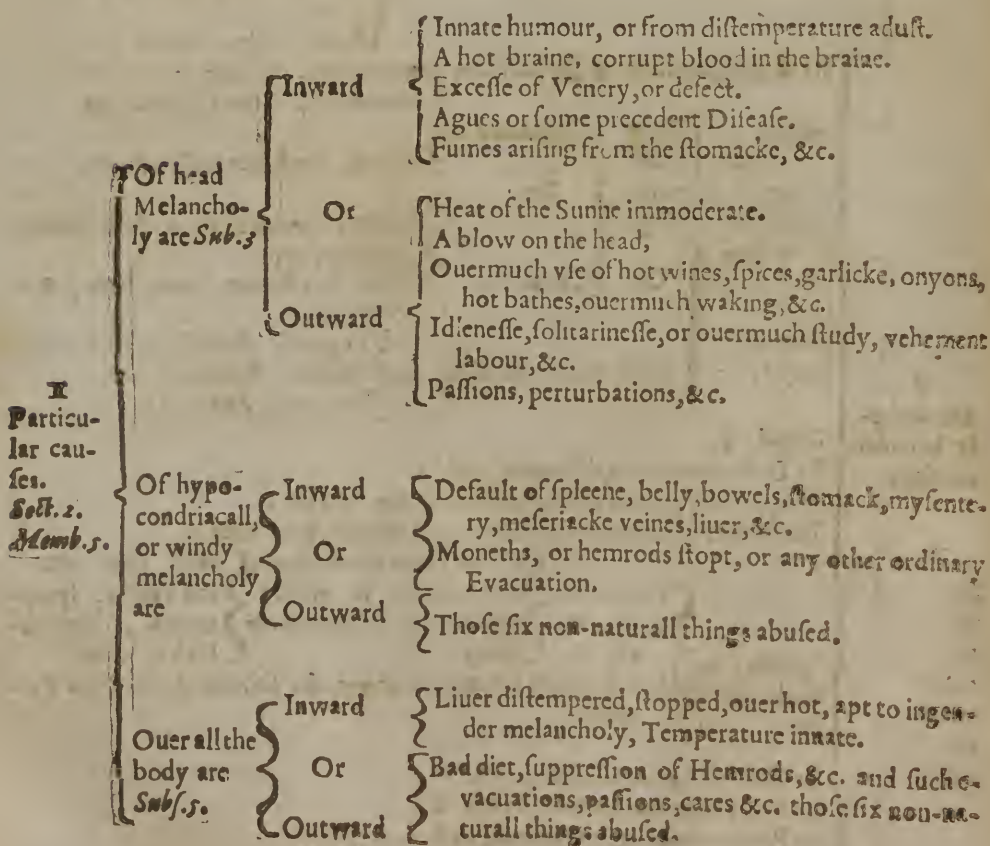 Π
Particu-
lar cau-
ſes.
Sect. 2.
Memb. 5.
Of head
Melancho-
ly are Sub. 3
Inward
Innate humour, or from diſtemperature aduſt.
A hot braine, corrupt blood in the braine.
Exceſſe of Venery, or defect.
Agues or ſome precedent Diſeaſe.
Fumes ariſing from the ſtomacke, &c.
Or
Outward
Heat of the Sunne immoderate.
A blow on the head,
Ouermuch vſe of hot wines, ſpices, garlicke, onyons,
hot bathes, ouermuch waking, &c.
Idleneſſe, ſolitarineſſe, or ouermuch ſtudy, vehement
labour, &c.
Paſſions, perturbations, &c.
Of hypo-
condriacall,
or windy
melancholy
are
Inward
Default of ſpleene, belly, bowels, ſtomack, myſente-
ry, meſeriacke veines, liuer, &c.
Moneths, or hemrods ſtopt, or any other ordinary
Evacuation.
Or
Outward
Thoſe ſix non-naturall things abuſed.
Ouer all the
body are
Subſ. 5.
Inward
Liuer diſtempered, ſtopped, ouer hot, apt to ingen-
der melancholy, Temperature innate.
Or
Outward
Bad diet, ſuppreſſion of Hemrods, &c. and ſuch e-
vacuations, paſſions, cares &c. thoſe ſix non-na-
turall things abuſed.